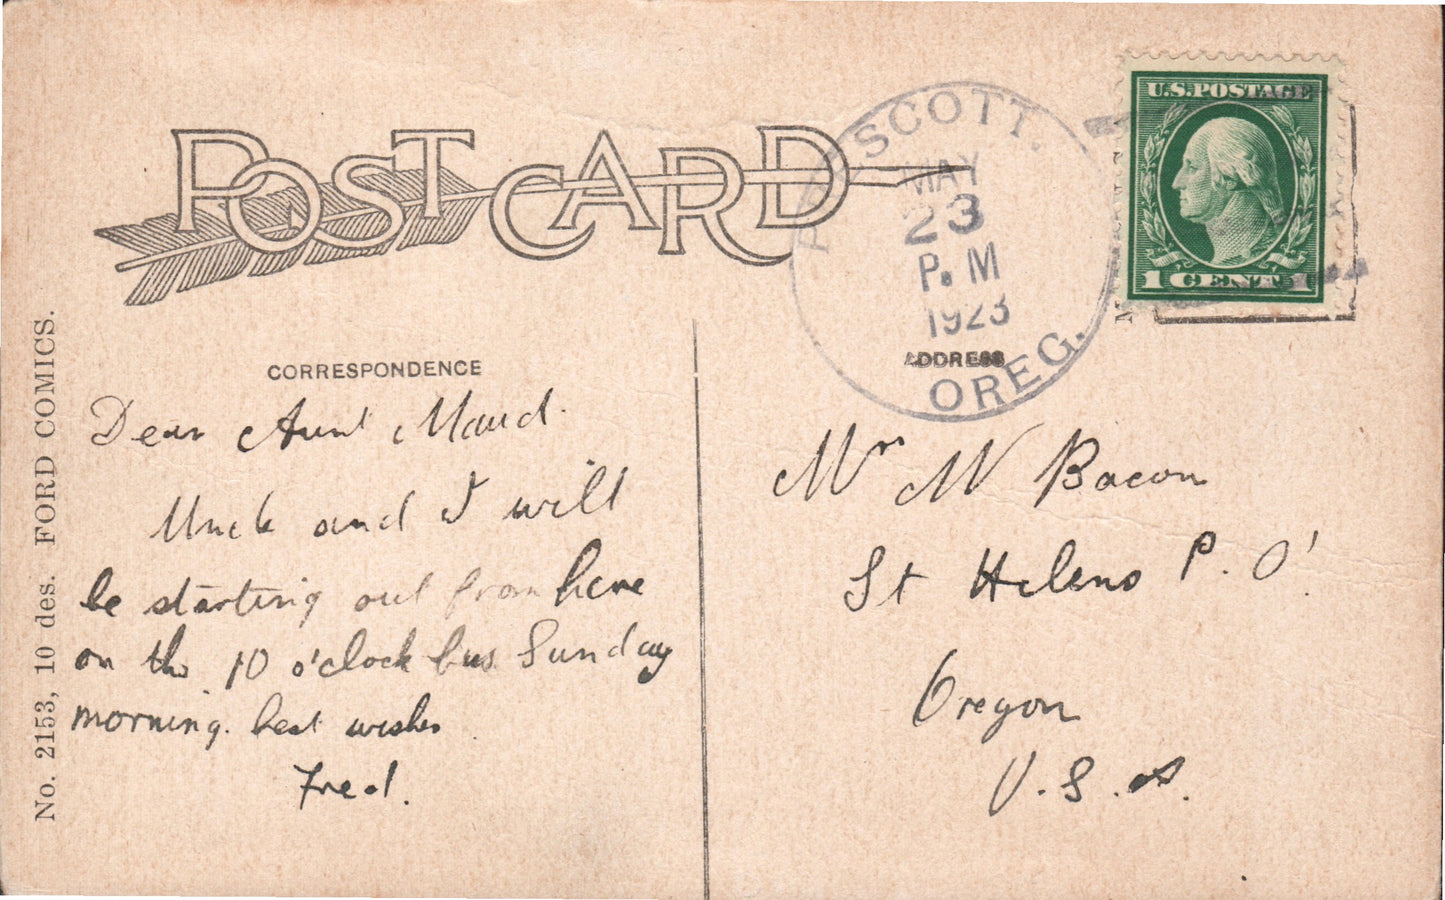 POST CARD
CORRESPONDENCE
Dear Aunt Maud.
Uncle and I will
be starting out from here
on the 10 o'clock bus Sunday
morning. best wishes
Fred.
No. 2153, 10 des. FORD COMICS.
PRESCOTT.
MAY
23
P.M
1923
OREG.
U.S.POSTAGE
1 CENT 1
ADDRESS
Mr W Bacon
St Helens P.O'
Oregon
U.S.A.